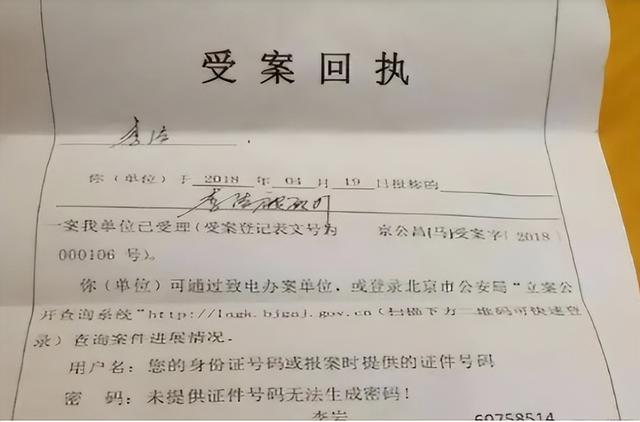 受案回执
李
你（单位）于 2018 年 04 月 19 日报称的
李
一案我单位已受理（受案登记表文号为 京公昌(马)受案字[2018]
000106 号）。
你（单位）可通过致电办案单位，或登录北京市公安局“立案公
开查询系统”http://lagk.bjgaj.gov.cn（扫描下方二维码可快速登
录）查询案件进展情况.
用户名：您的身份证号码或报案时提供的证件号码
密 码：未提供证件号码无法生成密码！
李岩 69758514